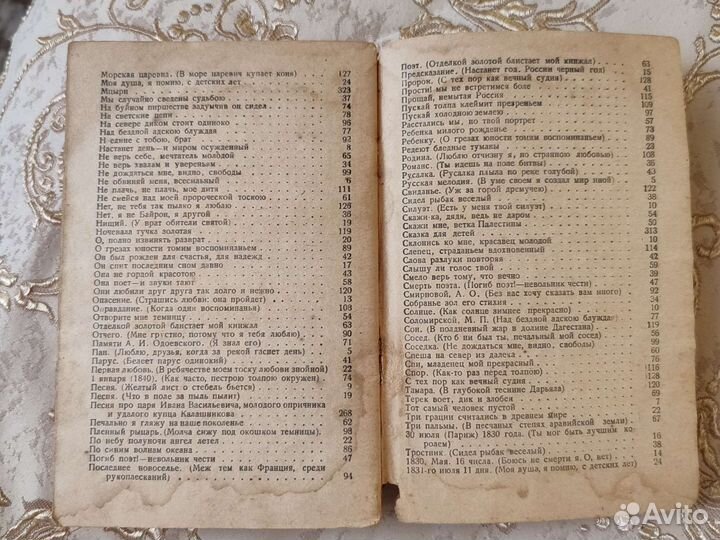 Морская царевна. (В море царевич купает коня) 127
Моя душа, я помню, с детских лет 24
Мцыри 323
Мы случайно сведены судьбою 37
На буйном пиршестве задумчив он сидел 74
На светские цепи 78
На севере диком стоит одиноко 96
Над бездной адскою блуждая 77
Наедине с тобою, брат 91
Настанет день—и миром осужденный 8
Не верь себе, мечтатель молодой 65
Не верь хвалам и увереньям 34
Не дождаться мне, видно, свободы 99
Не обвиняй меня, всесильный 6
Не плачь, не плачь, мое дитя 111
Не смейся над моей пророческой тоскою 61
Нет, не тебя так пылко я люблю 128
Нет, я не Байрон, я другой 38
Нищий. (У врат обители святой) 19
Ночевала тучка золотая 119
О, полно извинять разврат 20
О грезах юности томим воспоминаньем 89
Он был рожден для счастья, для надежд 42
Он спит последним сном давно 17
Она не гордой красотою 43
Она поет—и звуки тают 58
Они любили друг друга так долго и нежно 120
Опасение. (Страшись любви: она пройдет) 13
Оправдание. (Когда одни воспоминанья) 103
Отворите мне темницу 54
Отделкой золотой блистает мой кинжал 63
Отчего. (Мне грустно, потому что я тебя люблю) 90
Памяти А. И. Одоевского. (Я знал его) 71
Пан. (Люблю, друзья, когда за рекой гаснет день) 5
Парус. (Белеет парус одинокий) 41
Первая любовь. (В ребячестве моем тоску любови знойной) 22
1 января (1840). (Как часто, пестрою толпою окружен) 74
Песня. (Желтый лист о стебель бьется) 31
Песня. (Что в поле за пыль пылит) 19
Песня про царя Ивана Васильевича, молодого опричника
и удалого купца Калашникова 268
Печально я гляжу на наше поколенье 62
Пленный рыцарь. (Молча сижу под окошком темницы) 98
По небу полуночи ангел летел 22
По синим волнам океана 86
Погиб поэт!—невольник чести 47
Последнее новоселье. (Меж тем как Франция, среди
рукоплесканий) 94
Поэт. (Отделкой золотой блистает мой кинжал) 63
Предсказание. (Настанет год, России черный год) 15
Пророк. (С тех пор как вечный судия) 128
Прости! мы не встретимся боле 41
Прощай, немытая Россия 115
Пускай толпа клеймит презреньем 109
Пускай холодною землею 97
Расстались мы, но твой портрет 57
Ребенка милого рожденье 73
Ребенку. (О грезах юности томим воспоминаньем) 89
Редеют бледные туманы 23
Родина. (Люблю отчизну я, но странною любовью) 108
Романс. (Ты идешь на поле битвы) 36
Русалка. (Русалка плыла по реке голубой) 43
Русская мелодия. (В уме своем я создал мир иной) 5
Свиданье. (Уж за горой дремучею) 122
Сидел рыбак веселый 38
Силуэт. (Есть у меня твой силуэт) 10
Скажи-ка, дядя, ведь не даром 54
Скажи мне, ветка Палестины 50
Сказка для детей 313
Склонись ко мне, красавец молодой 10
Слепец, страданьем вдохновенный 114
Слова разлуки повторяя 42
Слышу ли голос твой 59
Смело верь тому, что вечно 39
Смерть поэта. (Погиб поэт!—невольник чести) 47
Смирновой, А. О. (Без вас хочу сказать вам много) 92
Собранье зол его стихия 10
Солнце. (Как солнце зимнее прекрасно) 34
Соломирской, М. П. (Над бездной адскою блуждая) 77
Сон. (В полдневный жар в долине Дагестана) 119
Сосед. (Кто б ни был ты, печальный мой сосед) 56
Соседка. (Не дождаться мне, видно, свободы) 99
Спеша на север из далека 60
Спи, младенец мой прекрасный 76
Спор. (Как-то раз перед толпою) 116
С тех пор как вечный судия 128
Тамара. (В глубокой теснине Дарьяла) 120
Терек воет, дик и злобен 69
Тот самый человек пустой 7
Три грации считались в древнем мире 7
Три пальмы. (В песчаных степях аравийской земли) 67
30 июля (Париж) 1830 года. (Ты мог быть лучшим ко-
ролем) 16
Тростник. (Сидел рыбак веселый) 38
1830. Мая. 16 числа. (Боюсь не смерти я. О, нет) 14
1831-го июля 11 дня. (Моя душа, я помню, с детских лет) 24
Avito